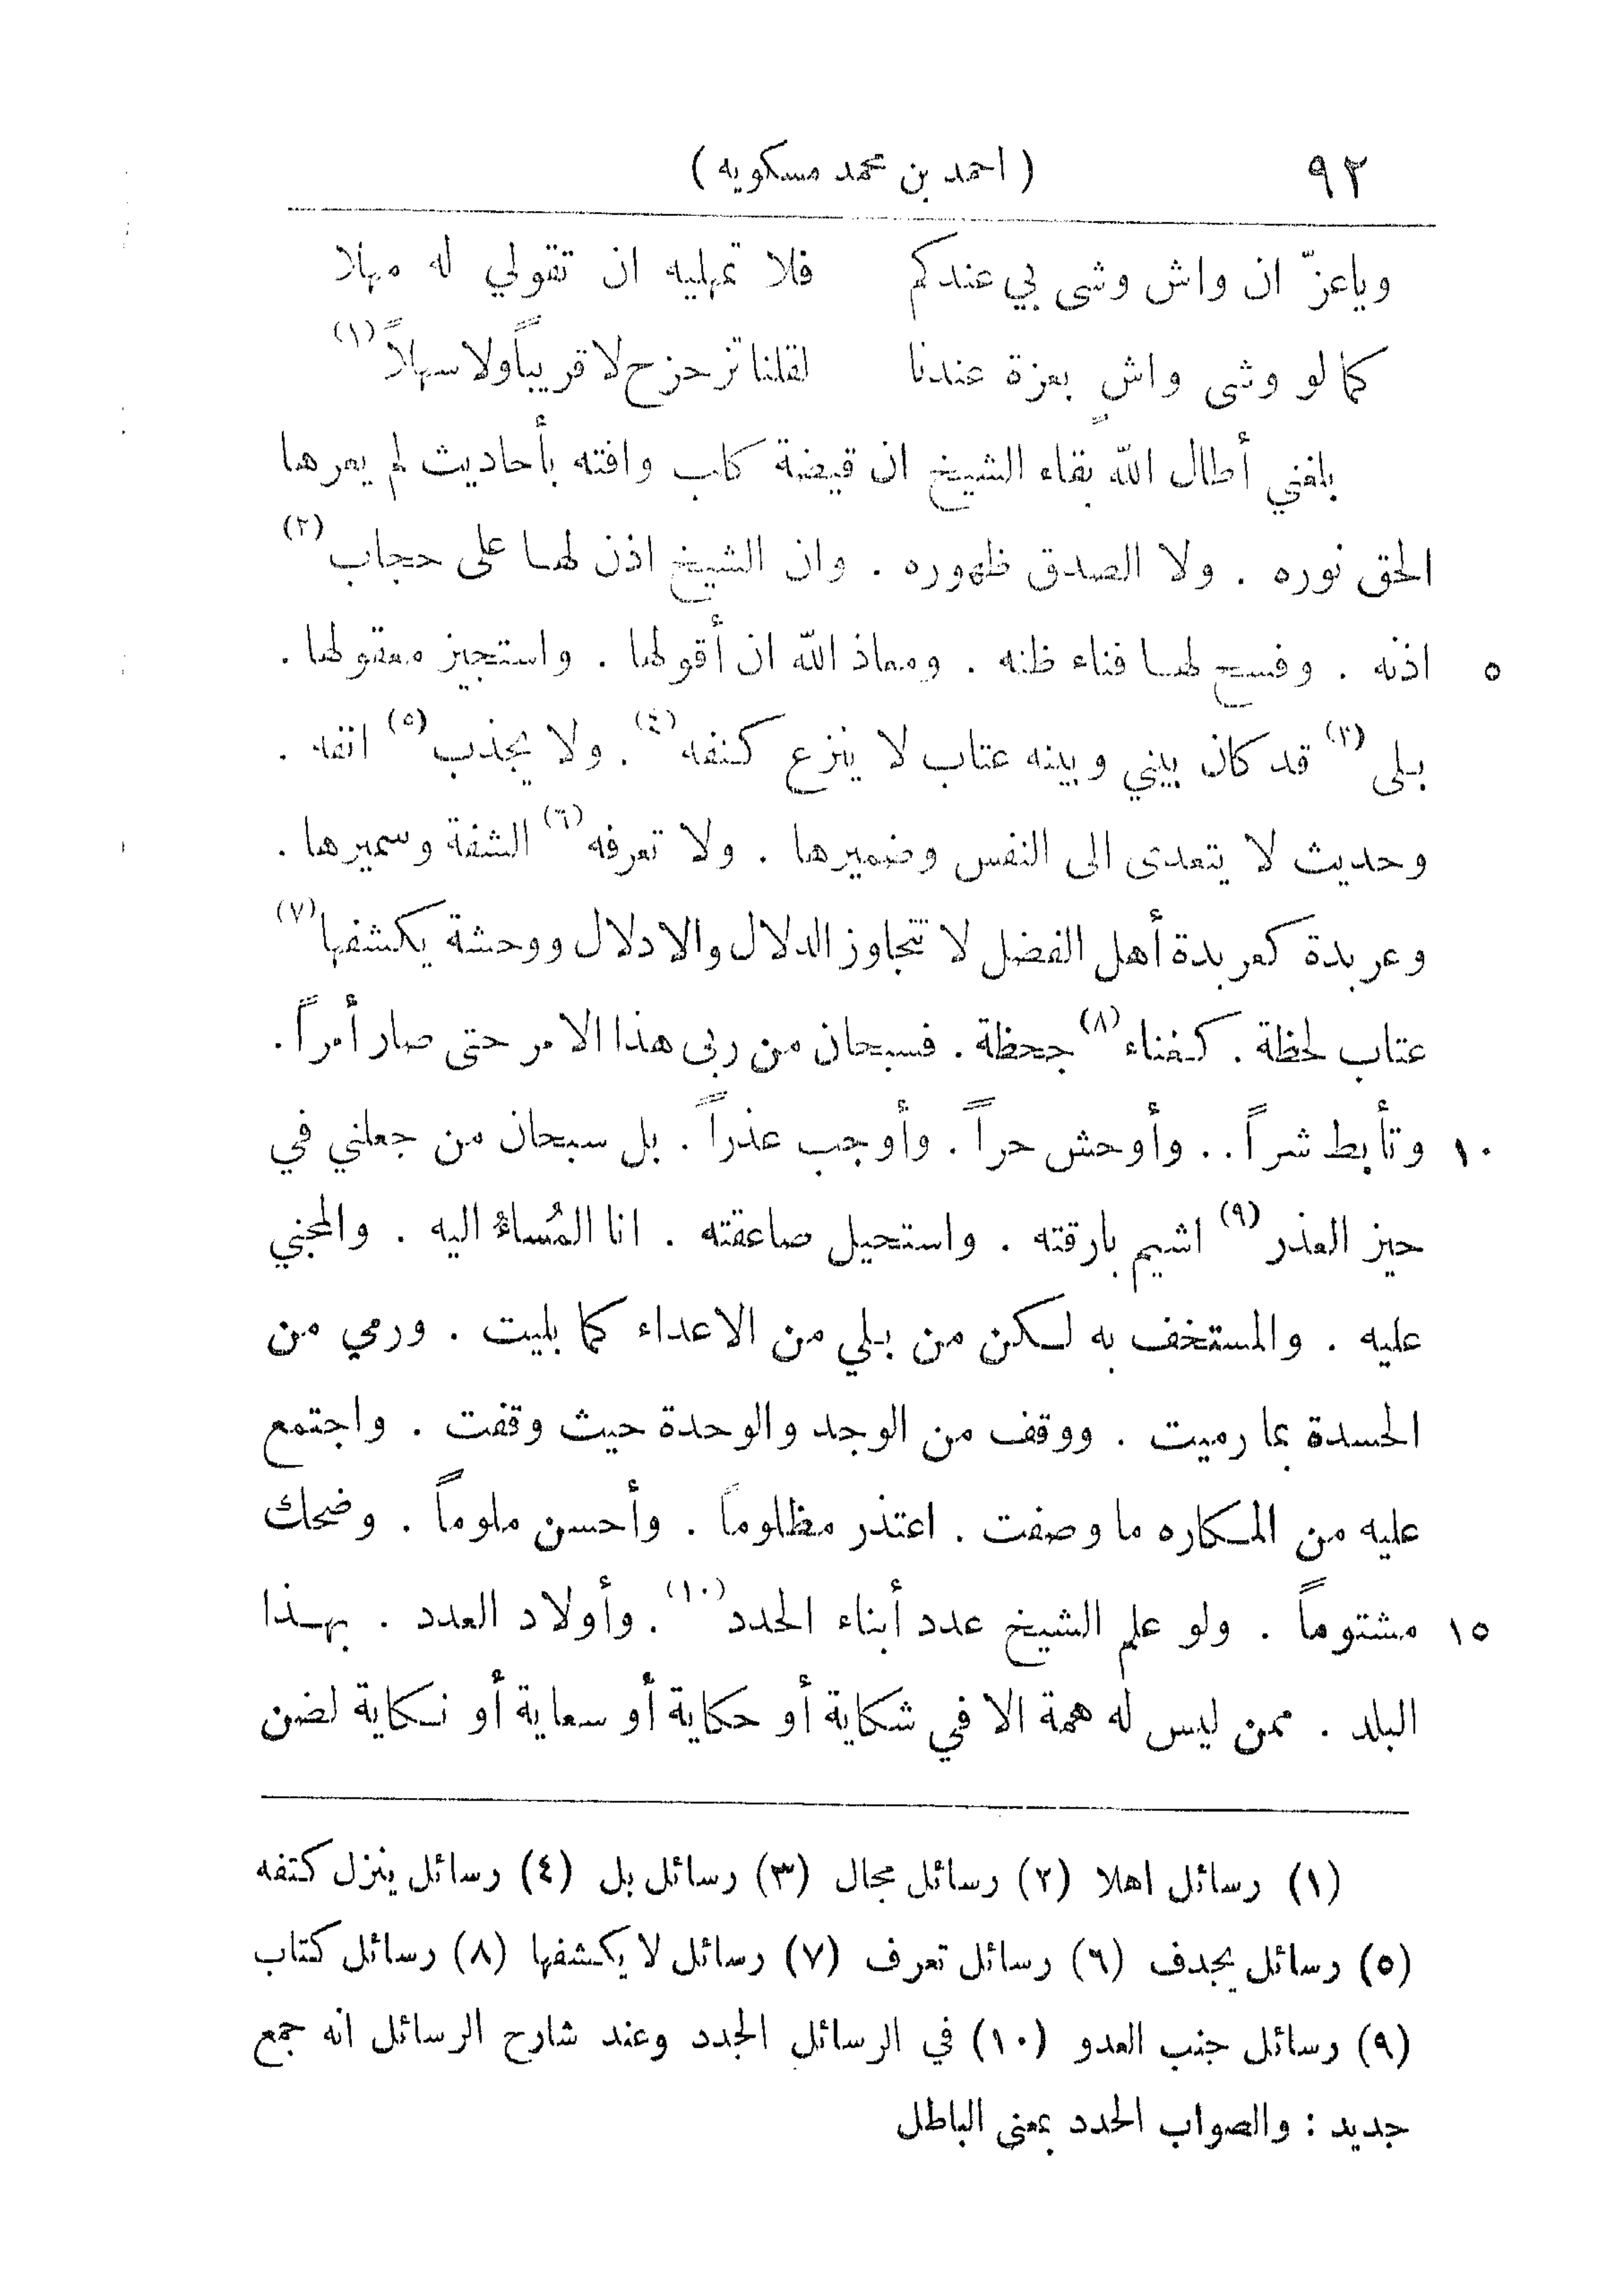 ٩٢ ( احمد بن محمد مسكويه )
وياعزّ ان واش وشى بي عندكم فلا تمهليه ان تقولي له مهلا
كما لو وشى واشٍ بعزة عندنا لقلنا تزحزح لا قريباً ولا سهلاً (١)
بلغني أطال الله بقاء الشيخ ان قيضة كلب وافته بأحاديث لم يعرها
الحق نوره . ولا الصدق ظهوره . وان الشيخ اذن لها على حجاب (٢)
٥ اذنه . وفسح لها فناء ظنه . ومعاذ الله ان أقولها . واستجيز معقولها .
بلى (٣) قد كان بيني وبينه عتاب لا ينزع كنفه (٤) . ولا يجذب (٥) انفه .
وحديث لا يتعدى الى النفس وضميرها . ولا تعرفه (٦) الشفة وسميرها .
وعربدة كعربدة أهل الفضل لا تتجاوز الدلال والادلال ووحشة يكشفها (٧)
عتاب لحظة . كغناء (٨) جحظة . فسبحان من ربى هذا الامر حتى صار أمراً .
١٠ وتأبط شراً . . وأوحش حراً . وأوجب عذراً . بل سبحان من جعلني في
حيز العذر (٩) اشيم بارقته . واستحيل صاعقته . انا المُساءُ اليه . والمجني
عليه . والمستخف به لكن من بلي من الاعداء كما بليت . ورمي من
الحسدة بما رميت . ووقف من الوجد والوحدة حيث وقفت . واجتمع
عليه من المكاره ما وصفت . اعتذر مظلوماً . وأحسن ملوماً . وضحك
١٥ مشتوماً . ولو علم الشيخ عدد أبناء الحدد (١٠) . وأولاد العدد . بهذا
البلد . ممن ليس له همة الا في شكاية أو حكاية أو سعاية أو نكاية لضن
(١) رسائل اهلا (٢) رسائل مجال (٣) رسائل بل (٤) رسائل ينزل كتفه
(٥) رسائل يجدف (٦) رسائل تعرف (٧) رسائل لا يكشفها (٨) رسائل كتاب
(٩) رسائل جنب العدو (١٠) في الرسائل الجدد وعند شارح الرسائل انه جمع
جديد : والصواب الحدد بمعنى الباطل